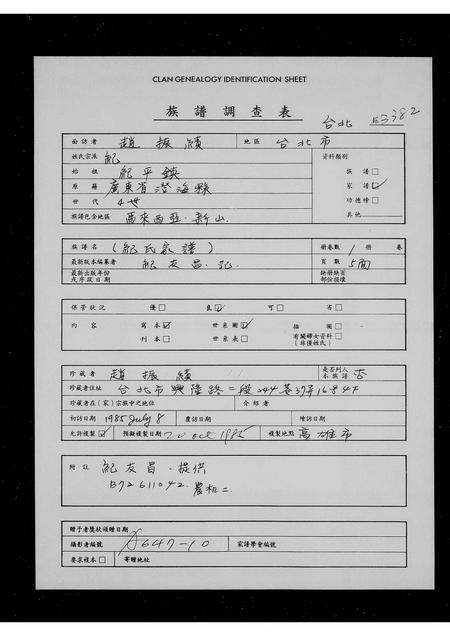 CLAN GENEALOGY IDENTIFICATION SHEET
族譜調查表
台北 5382
面訪者 趙振績 地區 台北市
姓氏宗派 紀 資料類別
始祖 紀平鎮 族譜□
原籍 廣東省澄海縣 家譜☑
世代 4世 功德榜□
族譜包含地區 馬來西亞.新山 其他
族譜名 (紀氏家譜) 册卷數 1 册 卷
最新版本編纂者 紀友昌.記 頁數 5面
最新出版年份或序跋日期 缺册缺頁部份損壞
保管狀況 優□ 良☑ 可□ 劣□
內容 寫本☑ 世系圖☑ 插圖□
刊本□ 世系表□ 有關婦女資料(非僅姓氏)□
珍藏者 趙振績 是否列入本族譜 否
珍藏者住址 台北市興隆路二段244巷37弄16号4F
珍藏者在(家)宗族中之地位 介紹者
初訪日期 1985 July 8 覆訪日期 繪訪日期
允許複製☑ 預擬複製日期 22 oct 1985 複製地點 高雄市
附註 紀友昌.提供
B72611042.農和二
贈予者獎狀頒贈日期
攝影者編號 A647-10 家譜學會編號
要求複本□ 寄贈地址